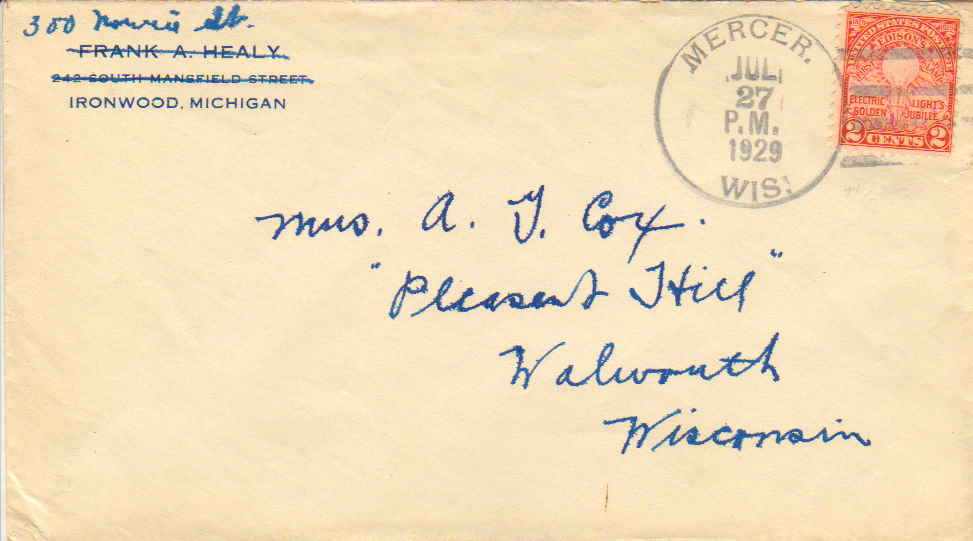 300 Norrie St.
FRANK A. HEALY
242 SOUTH MANSFIELD STREET
IRONWOOD, MICHIGAN
MERCER.
JUL
27
P.M.
1929
WIS.
UNITED STATES POSTAGE
EDISON'S
FIRST LAMP
ELECTRIC LIGHT'S
GOLDEN JUBILEE
2 CENTS 2
Mrs. A. J. Cox.
"Pleasant Hill"
Walworth
Wisconsin